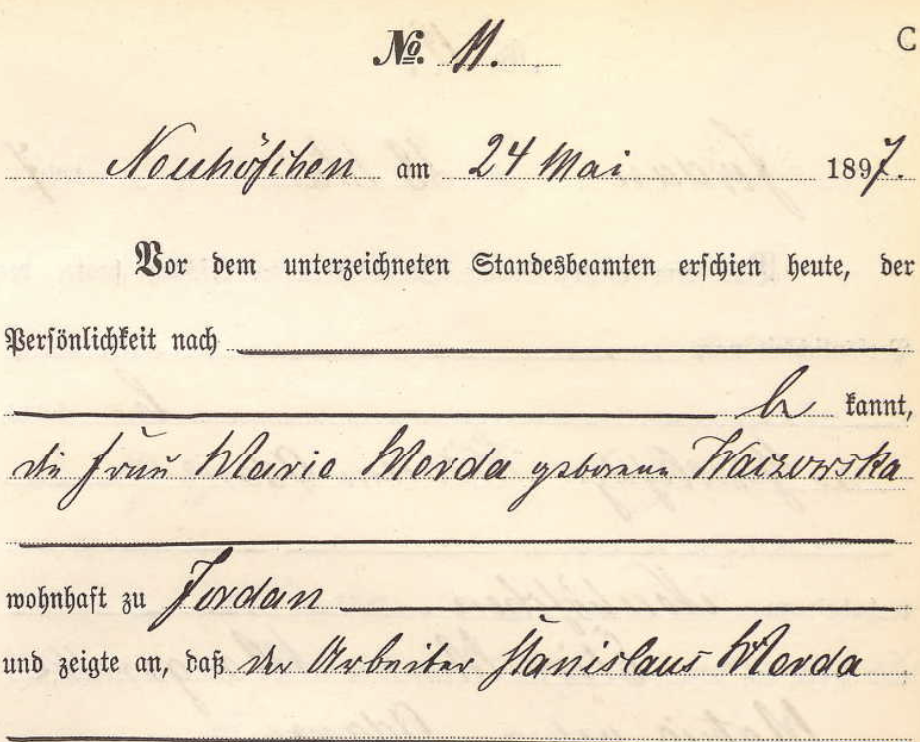 No. 11. C
Neuhöfchen am 24 Mai 1897.
Vor dem unterzeichneten Standesbeamten erschien heute, der
Persönlichkeit nach
be kannt,
die Frau Marie Morda geborene Waczowska
wohnhaft zu Jordan
und zeigte an, daß der Arbeiter Stanislaus Morda